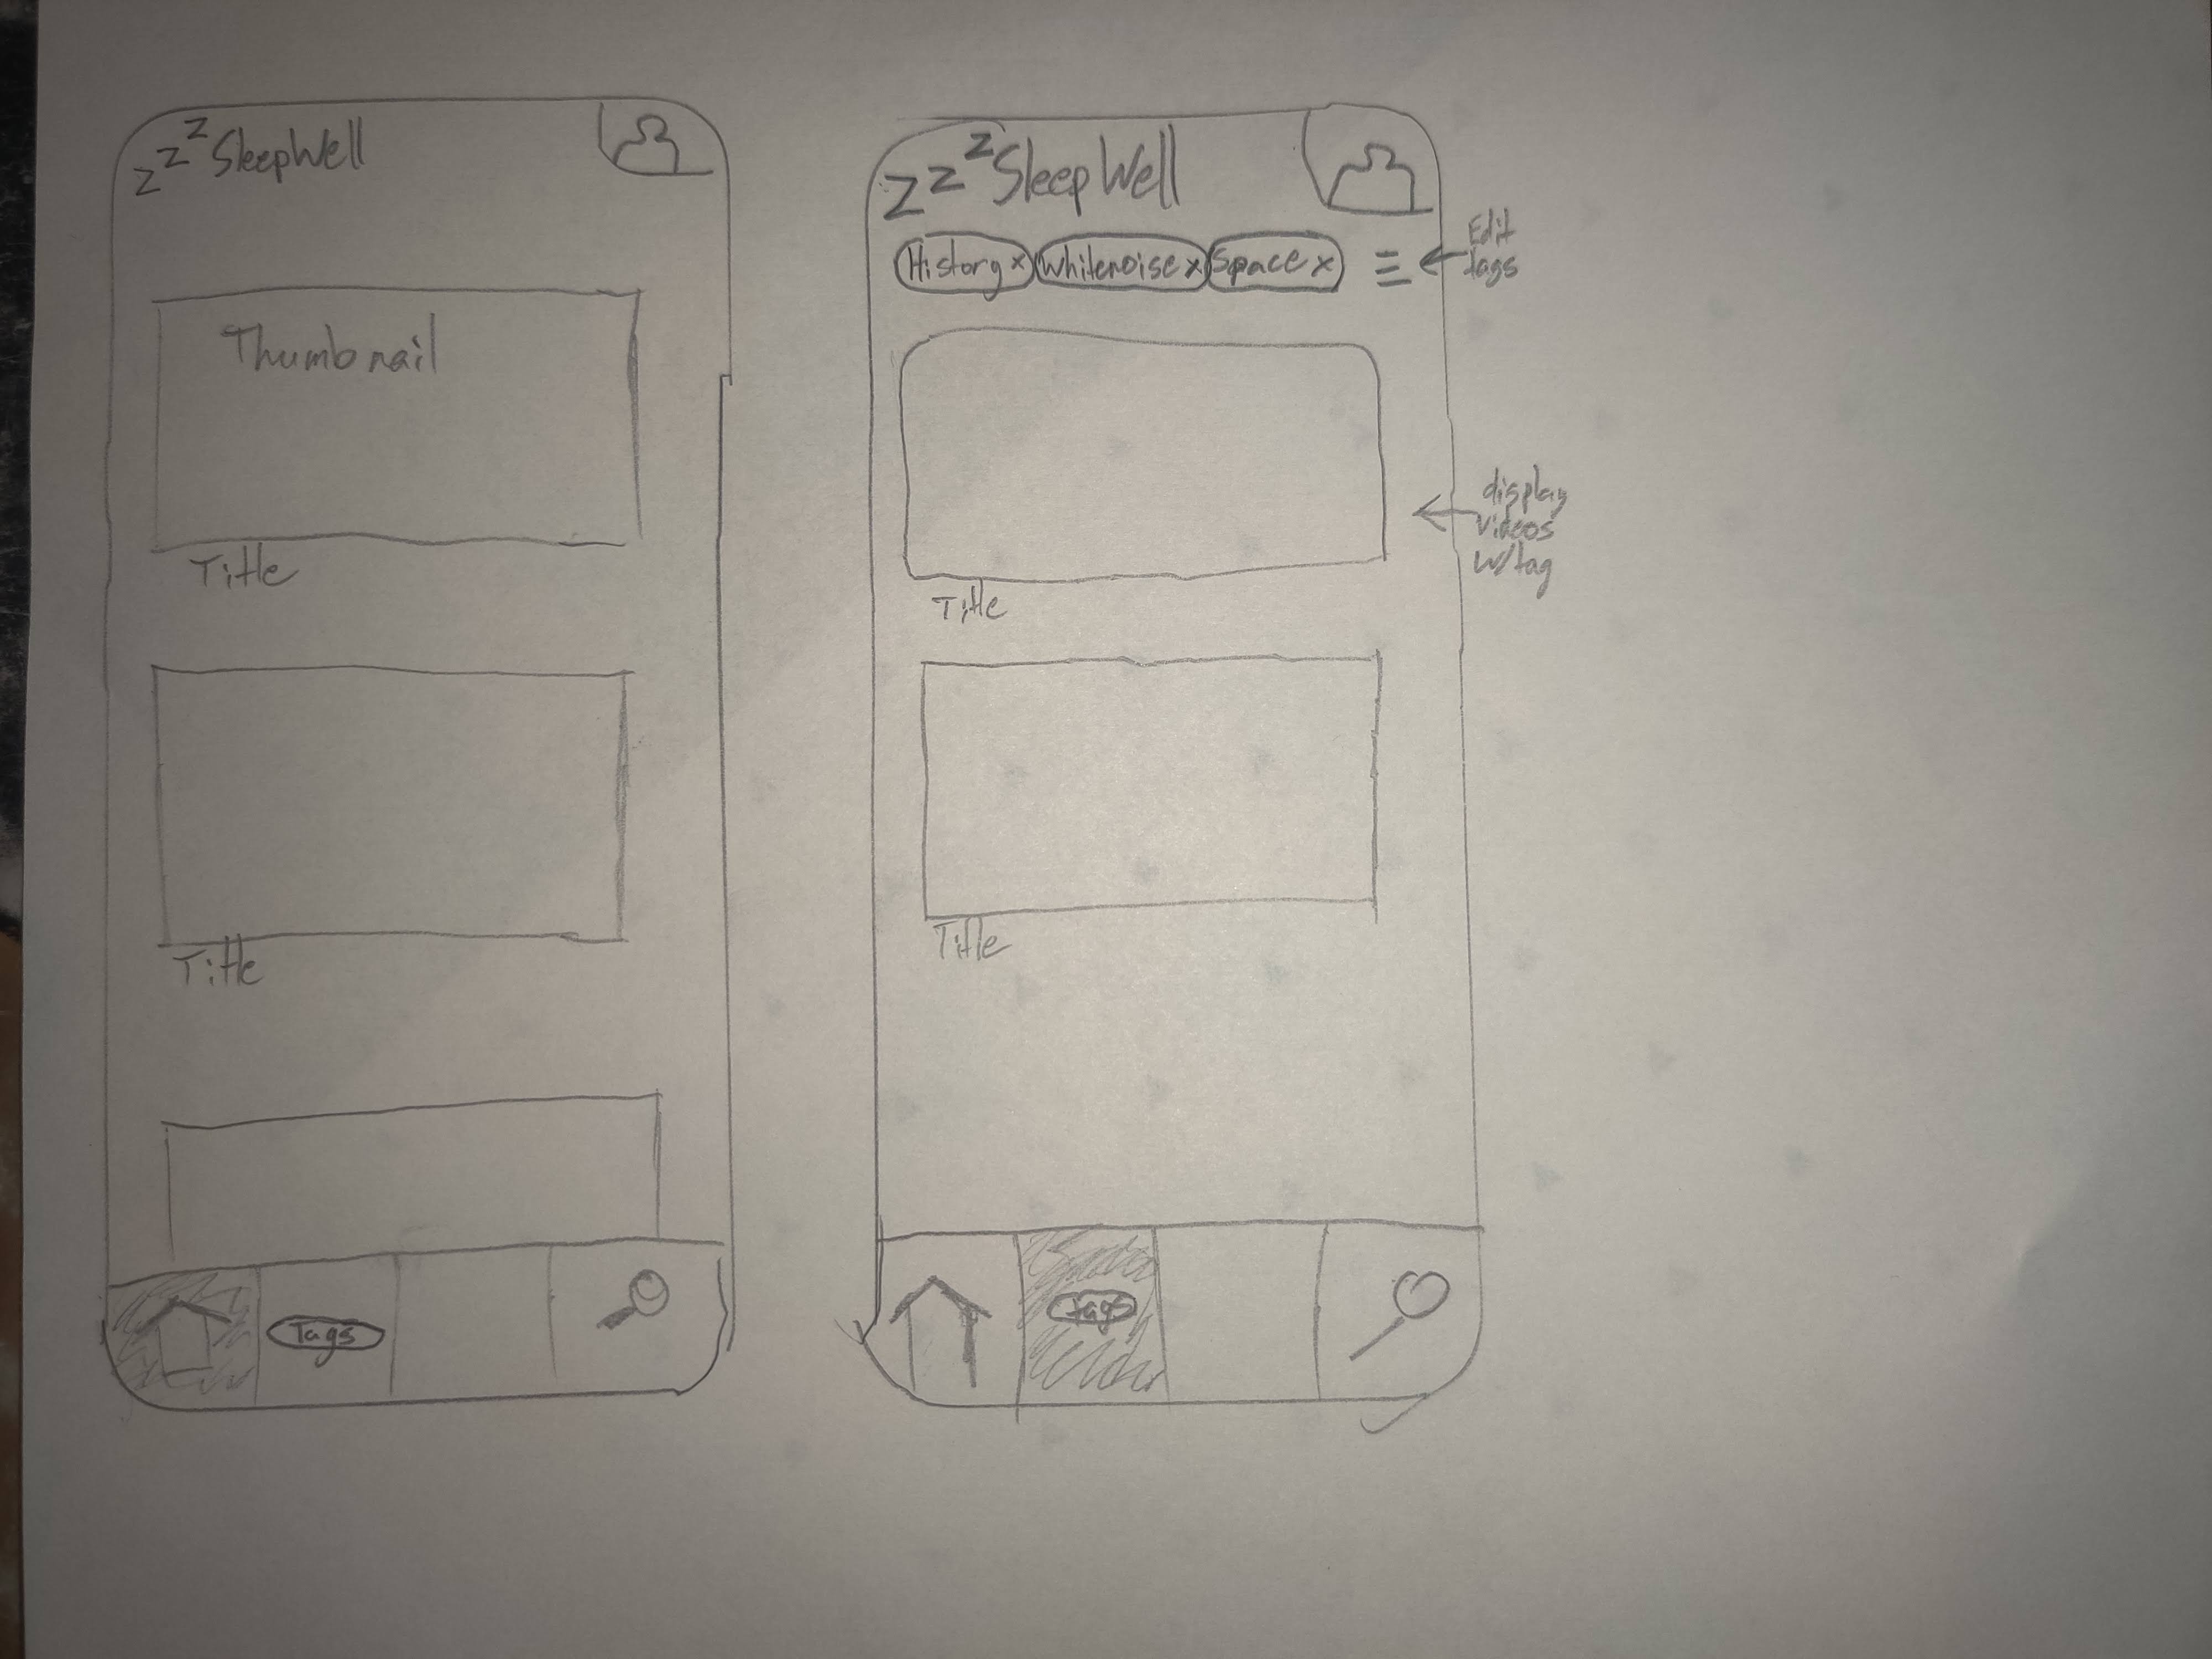 zzz SleepWell
Thumbnail
Title
Title
Tags
zzz SleepWell
History x Whitenoise x Space x
Edit
tags
display
videos
w/tag
Title
Title
Tags